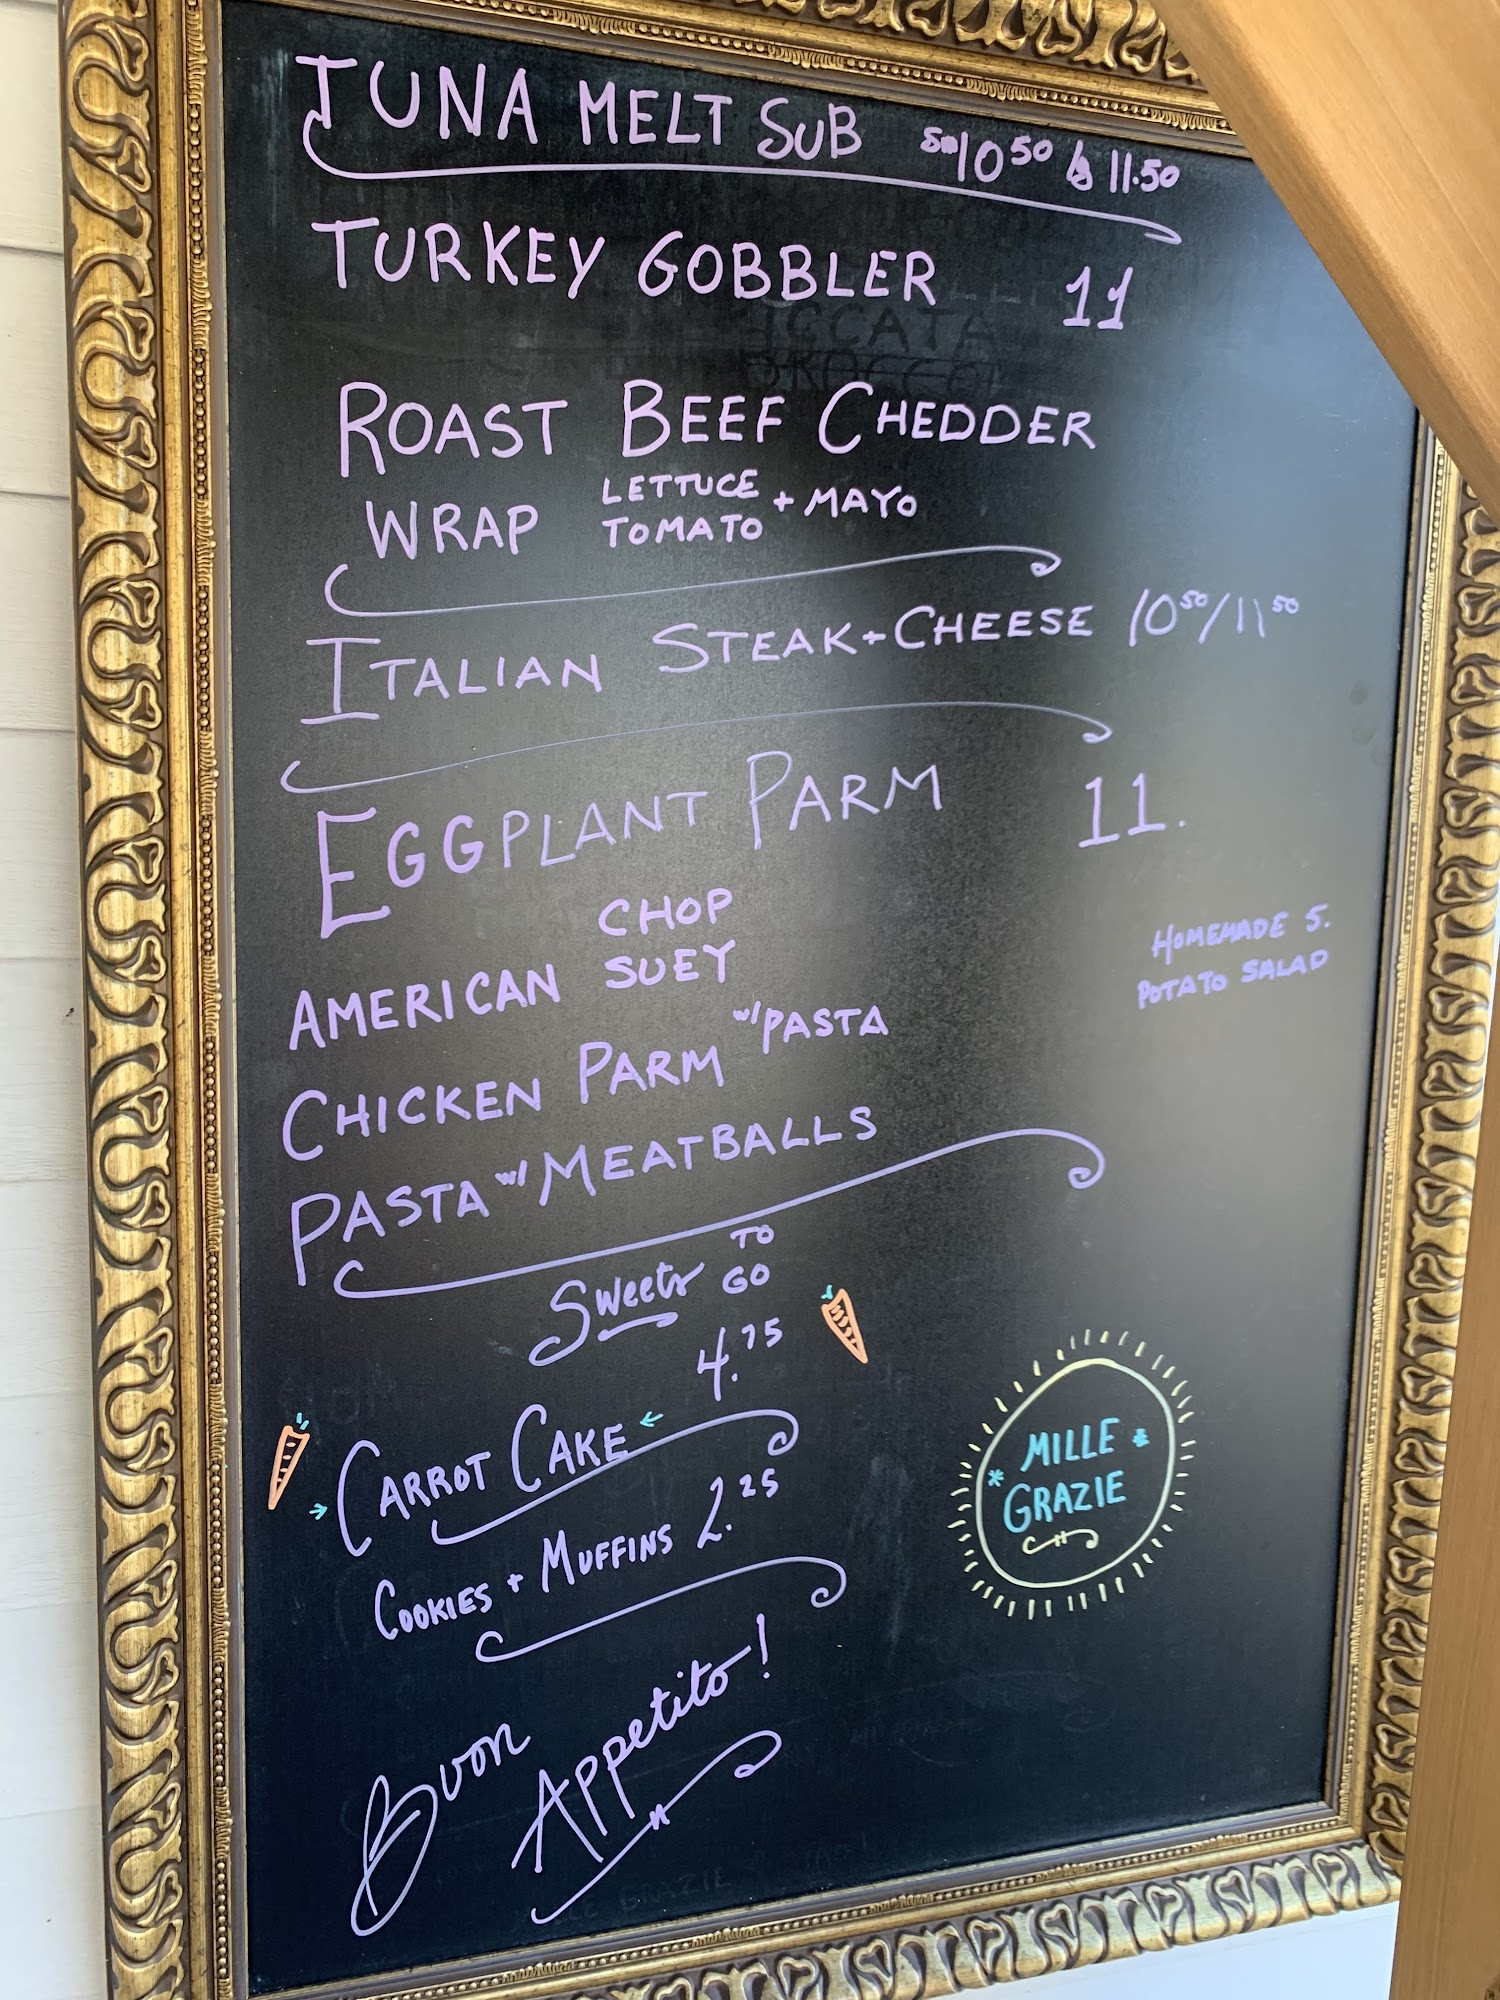 TUNA MELT SUB sm 10 50 lg 11.50
TURKEY GOBBLER 11
ROAST BEEF CHEDDER
WRAP LETTUCE TOMATO + MAYO
ITALIAN STEAK + CHEESE 10 50 / 11 50
EGGPLANT PARM 11.
HOMEMADE 5.
POTATO SALAD
AMERICAN CHOP SUEY
CHICKEN PARM w/ PASTA
PASTA w/ MEATBALLS
Sweets TO GO
CARROT CAKE 4.75
COOKIES + MUFFINS 2.25
MILLE
GRAZIE
Buon
Appetito!